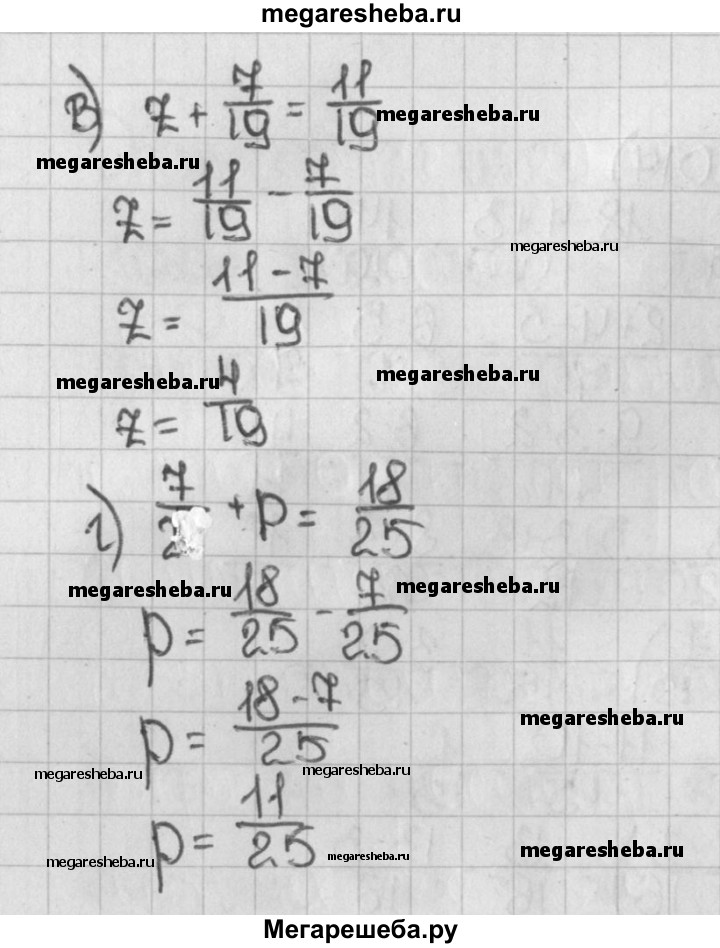 megaresheba.ru
в) z + 7/19 = 11/19
megaresheba.ru
megaresheba.ru
z = 11/19 - 7/19
megaresheba.ru
z = (11 - 7)/19
megaresheba.ru
megaresheba.ru
z = 4/19
г) 7/2 + p = 18/25
megaresheba.ru
megaresheba.ru
p = 18/25 - 7/25
p = (18 - 7)/25
megaresheba.ru
megaresheba.ru
megaresheba.ru
p = 11/25
megaresheba.ru
megaresheba.ru
megaresheba.ru
Мегарешеба.ру